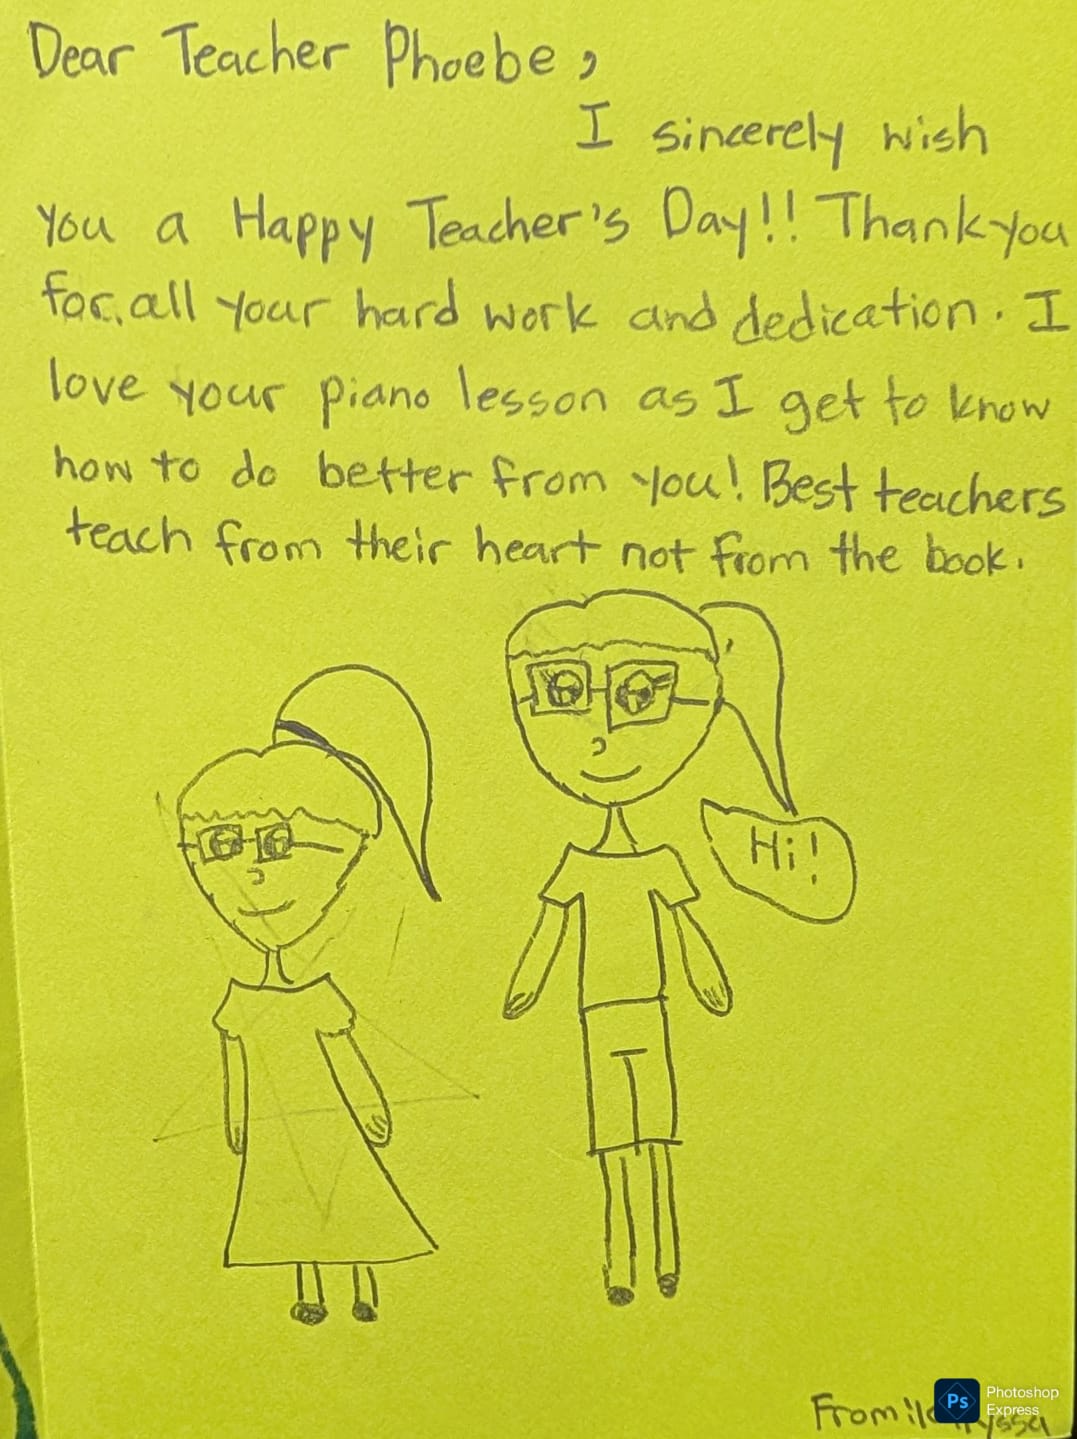 Dear Teacher Phoebe,
I sincerely wish
you a Happy Teacher's Day!! Thank you
for all your hard work and dedication. I
love your piano lesson as I get to know
how to do better from you! Best teachers
teach from their heart not from the book.
Hi!
From:
Ps Photoshop
Express